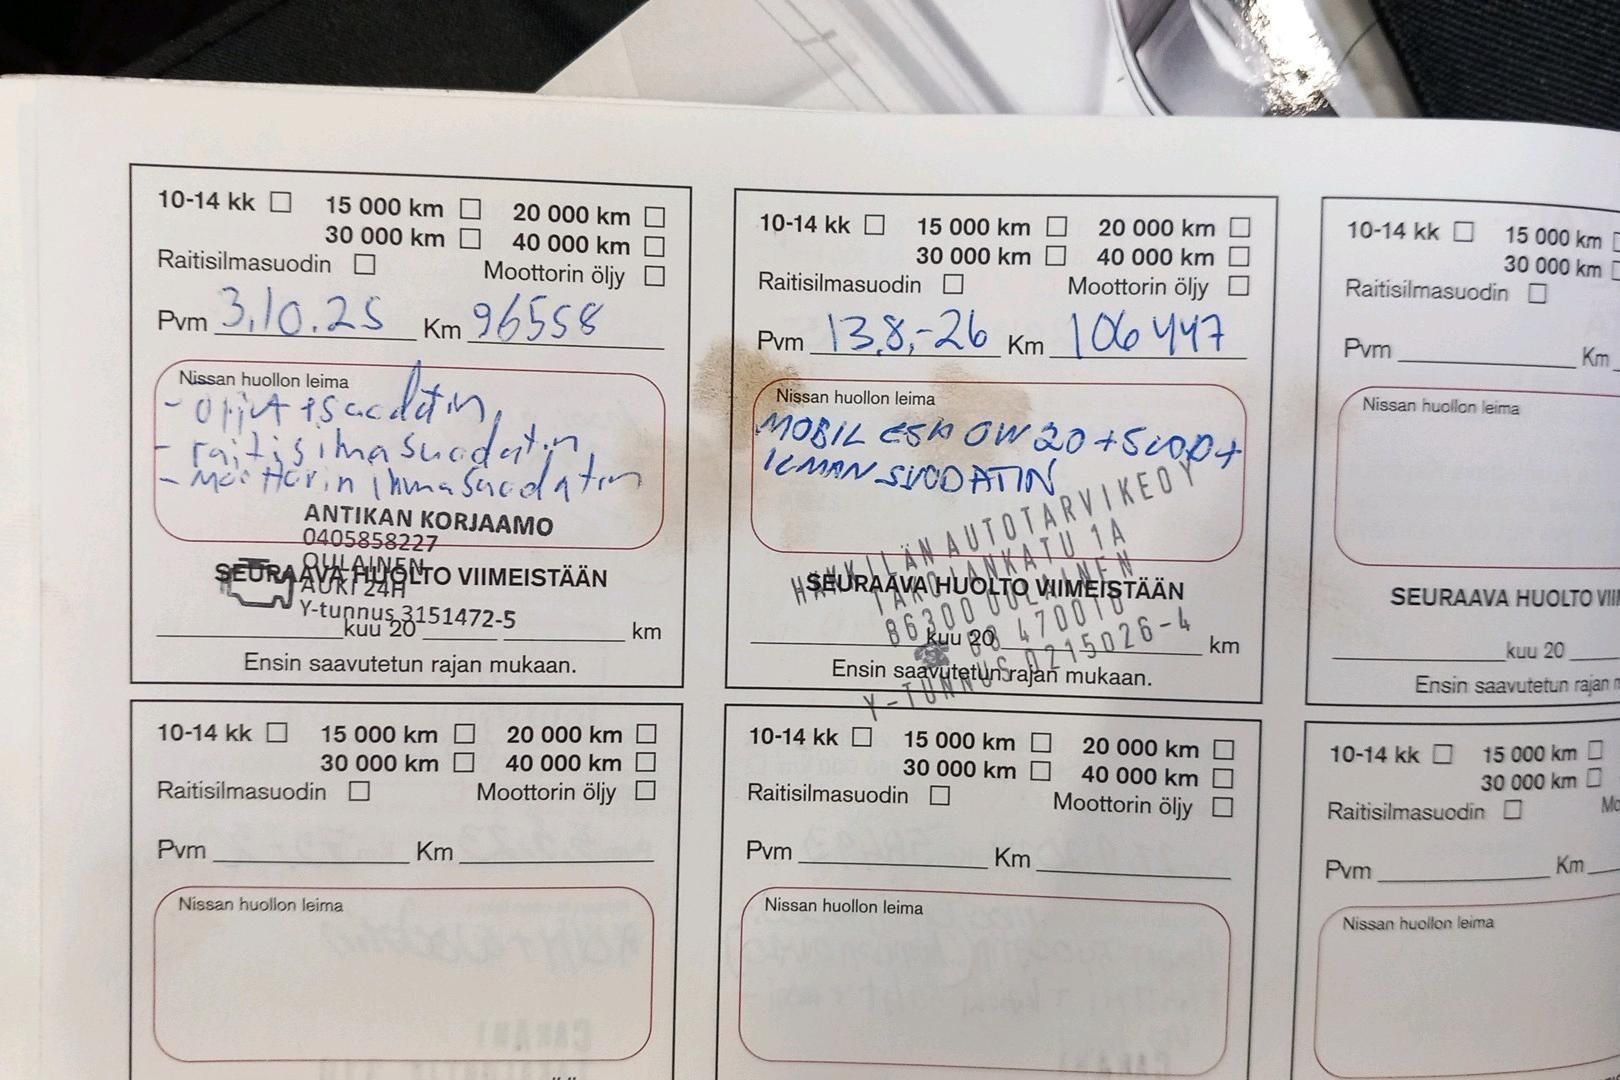 10-14 kk 15 000 km 20 000 km
30 000 km 40 000 km
Raitisilmasuodin Moottorin öljy
Pvm 3.10.25 Km 96558
Nissan huollon leima
- öljyt + suodatin,
- raitisilmasuodatin
- moottorin ilmasuodatin
ANTIKAN KORJAAMO
0405858227
OULAINEN
SEURAAVA HUOLTO VIIMEISTÄÄN
AUKI 24H
Y-tunnus 3151472-5
kuu 20 km
Ensin saavutetun rajan mukaan.
10-14 kk 15 000 km 20 000 km
30 000 km 40 000 km
Raitisilmasuodin Moottorin öljy
Pvm 13.8.-26 Km 106447
Nissan huollon leima
MOBIL ESH 0W20 + SUOD +
ILMANSUODATIN
AUTOTARVIKE OY
1A
SEURAAVA HUOLTO VIIMEISTÄÄN
86300 OULAINEN
08 470010
kuu 20 km
Y-TUNNUS 0215026-4
Ensin saavutetun rajan mukaan.
10-14 kk 15 000 km
30 000 km
Raitisilmasuodin
Pvm Km
Nissan huollon leima
SEURAAVA HUOLTO
kuu 20
Ensin saavutetun rajan
10-14 kk 15 000 km 20 000 km
30 000 km 40 000 km
Raitisilmasuodin Moottorin öljy
Pvm Km
Nissan huollon leima
10-14 kk 15 000 km 20 000 km
30 000 km 40 000 km
Raitisilmasuodin Moottorin öljy
Pvm Km
Nissan huollon leima
10-14 kk 15 000 km
30 000 km
Raitisilmasuodin
Pvm Km
Nissan huollon leima